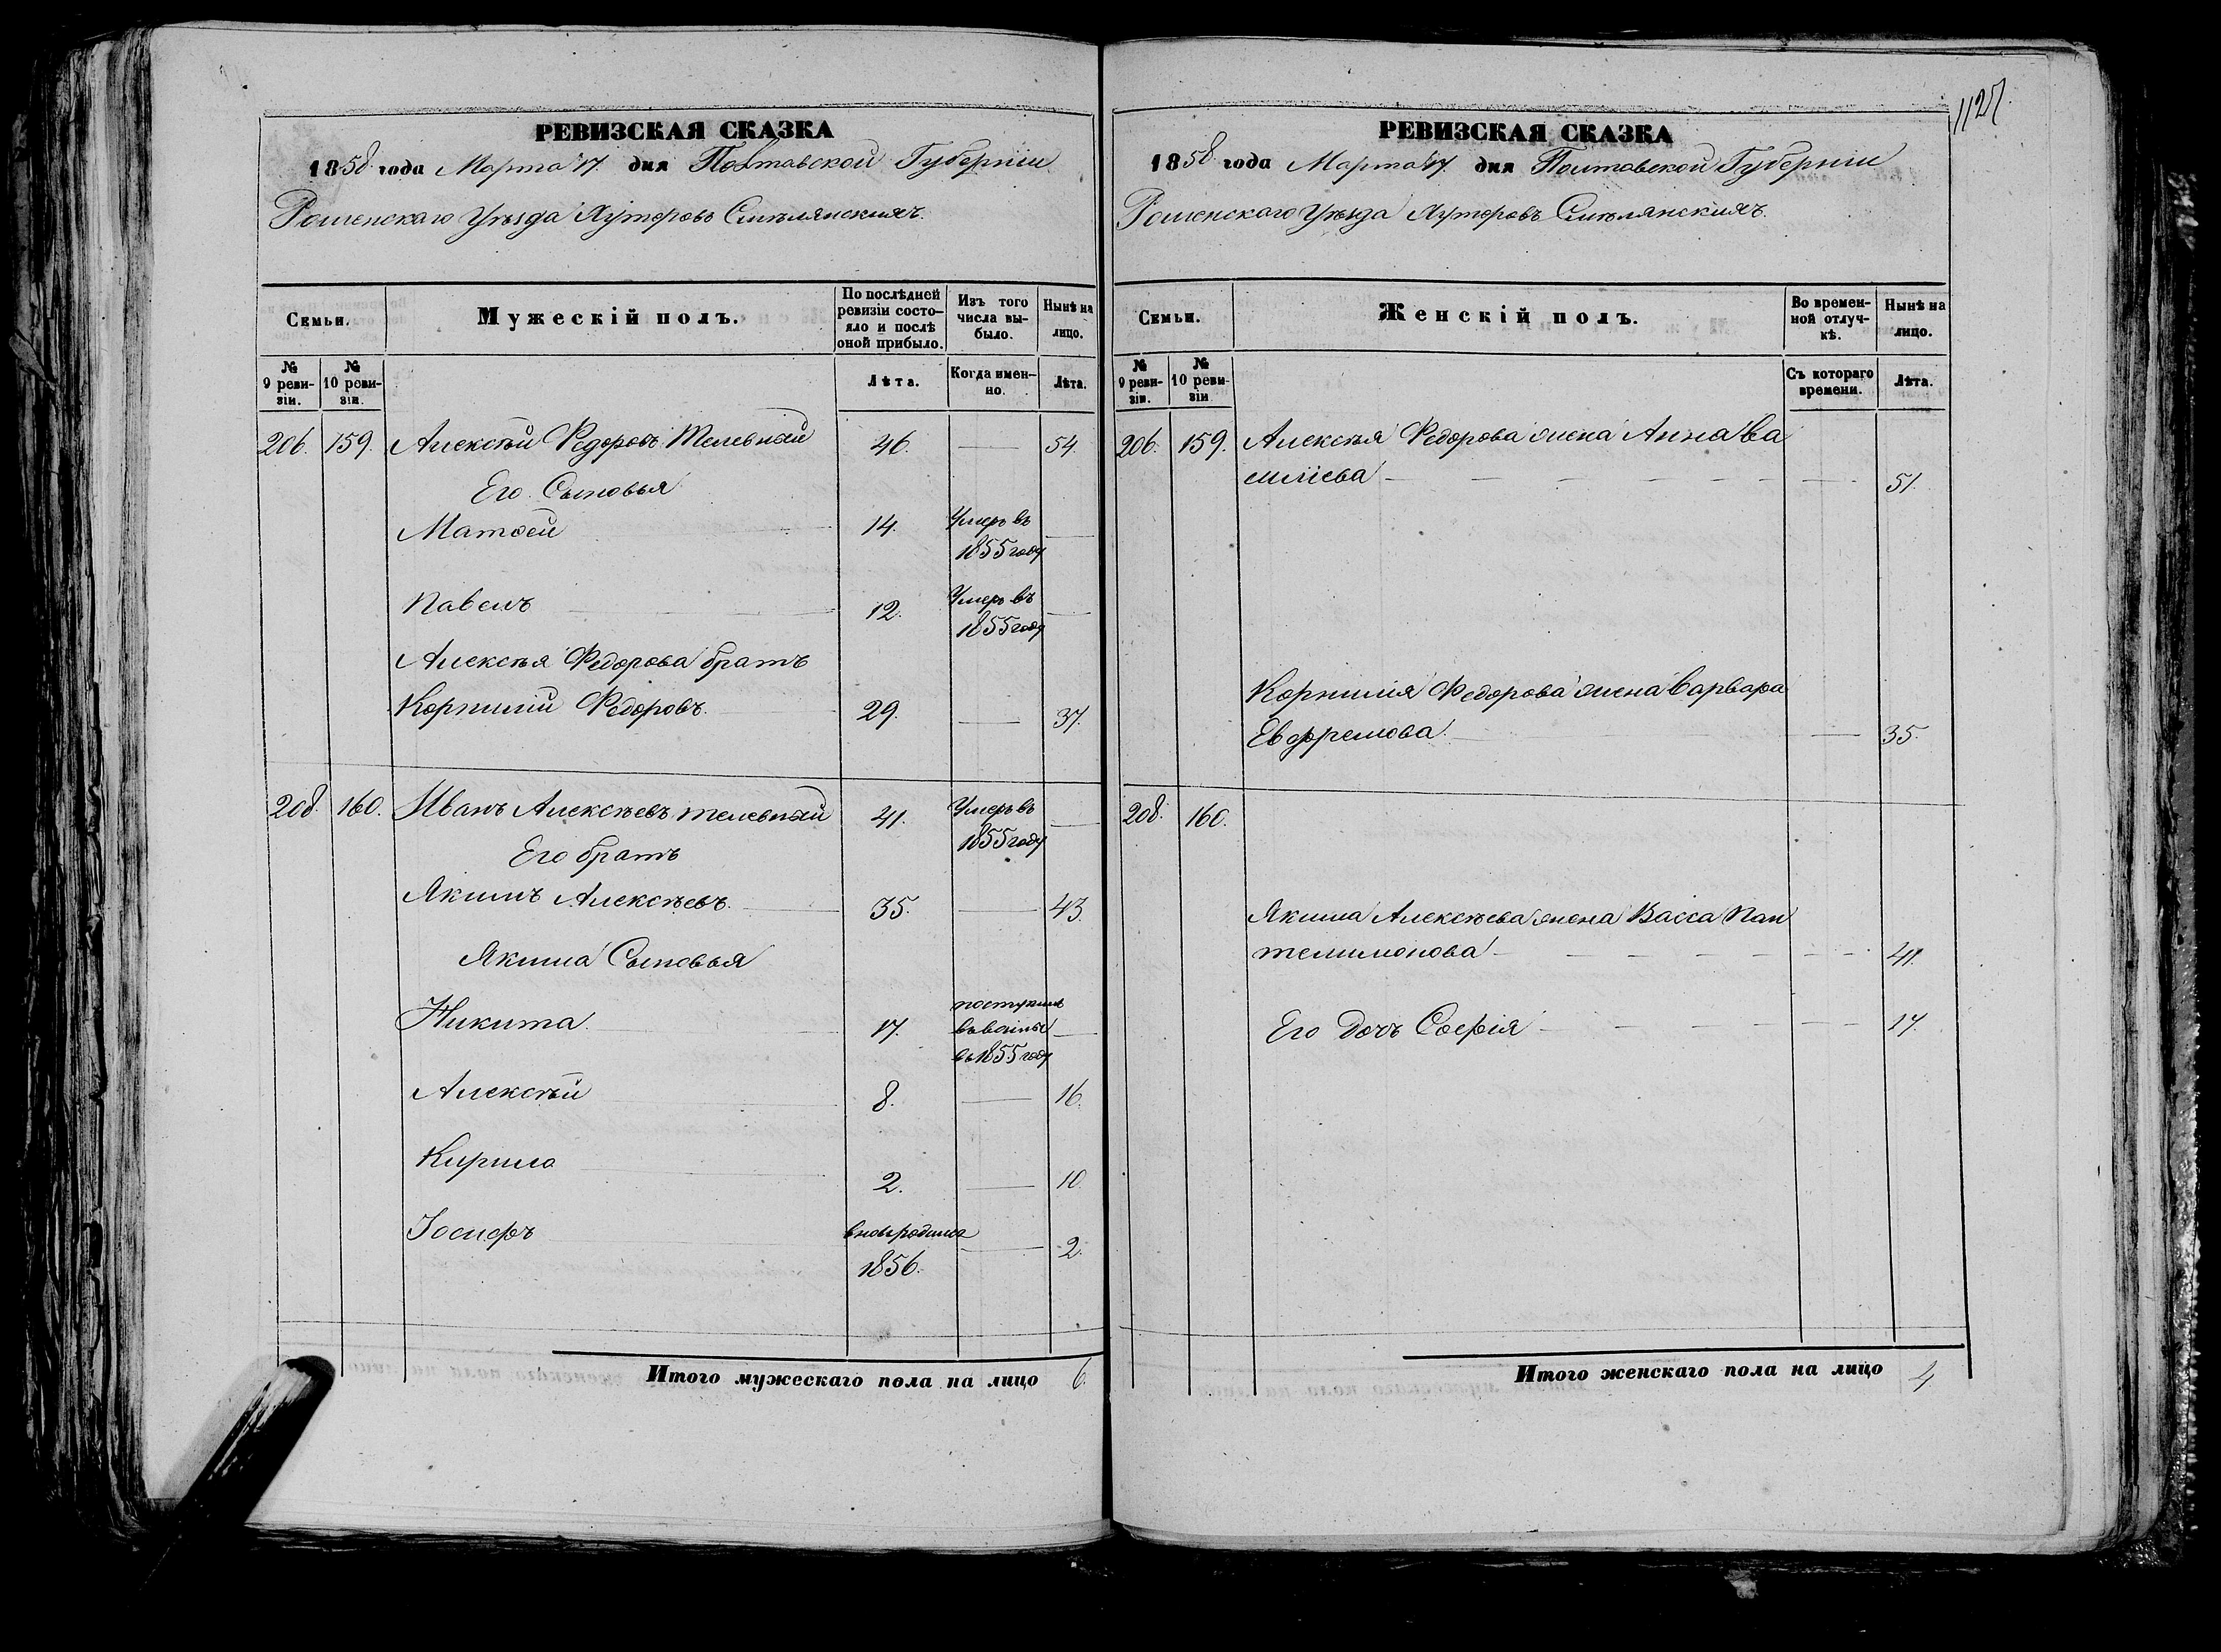 1127.
РЕВИЗСКАЯ СКАЗКА
1858 года Марта 17. дня Полтавской Губерніи
Роменскаго Уѣзда Хуторовъ Смѣлянскихъ.
Семьи.
Мужескій полъ.
По послѣдней ревизіи состо-
яло и послѣ оной прибыло.
Изъ того числа вы-
было.
Нынѣ на лицо.
№ 9 реви-
зіи.
№ 10 реви-
зіи.
Лѣта.
Когда имен-
но.
Лѣта.
206. 159. Алексѣй Федоровъ Телевный 46. — 54.
Его Сыновья
Матвей 14. Умеръ въ 1855 году —
Павелъ 12. Умеръ въ 1855 году —
Алексѣя Федорова братъ
Корнилій Федоровъ 29. — 37.
208. 160. Иванъ Алексѣевъ Телевный 41. Умеръ въ 1855 году —
Его братъ
Якимъ Алексѣевъ. 35. — 43.
Якима Сыновья
Никита. 17. поступилъ въ 1855 году —
Алексѣй 8. — 16.
Кирило 2. — 10.
Іосифъ вновьродился 1856. — 2.
Итого мужескаго пола на лицо 6.
РЕВИЗСКАЯ СКАЗКА
1858 года Марта 17. дня Полтавской Губерніи
Роменскаго Уѣзда Хуторовъ Смѣлянскихъ.
Семьи.
Женскій полъ.
Во времен-
ной отлуч-
кѣ.
Нынѣ на лицо.
№ 9 реви-
зіи.
№ 10 реви-
зіи
Съ котораго времени.
Лѣта.
206. 159. Алексѣя Федорова жена Анна Ва
силіева — 51.
Корнилія Федорова жена Варвара
Евфремова. — 35.
208. 160.
Якима Алексѣева жена Васса Пан
телимонова — 41.
Его дочь Софія — 17.
Итого женскаго пола на лицо 4